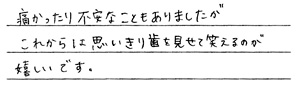 痛かったり不安なこともありましたが
これからは思いきり歯を見せて笑えるのが
嬉しいです。